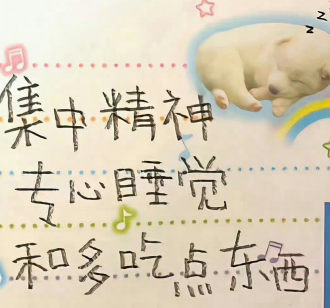 z
z
集中精神
专心睡觉
和多吃点东西